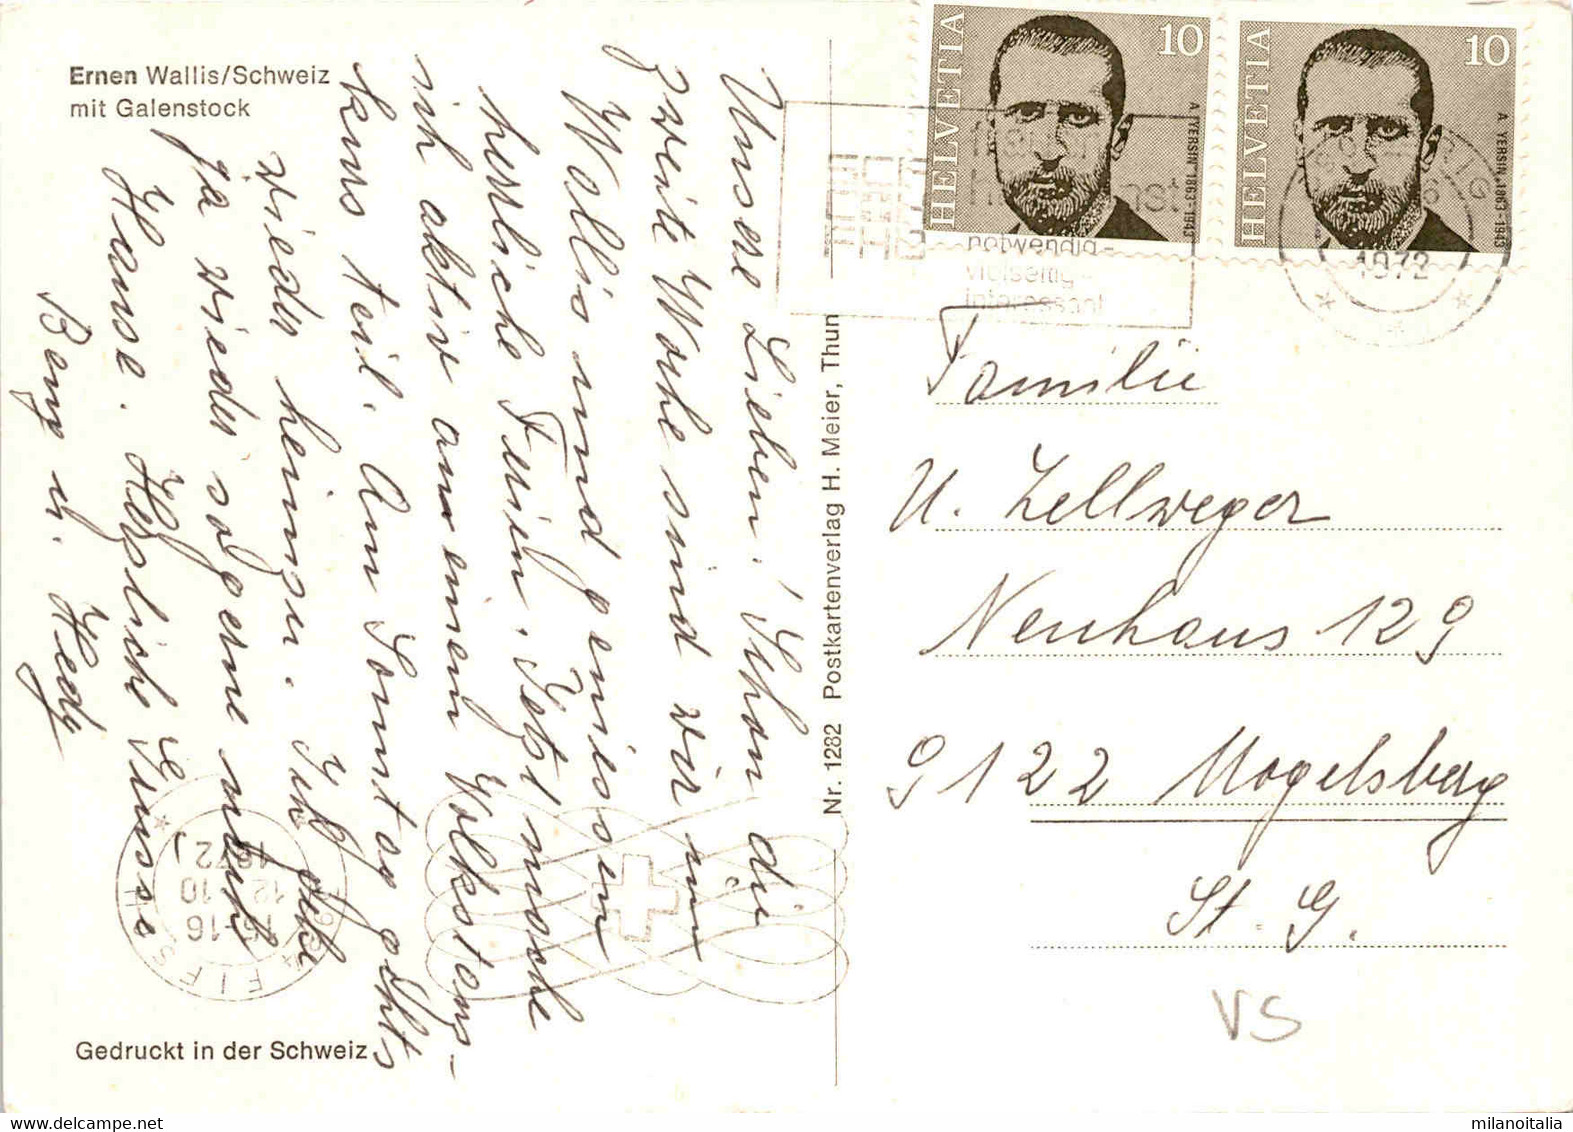 Ernen Wallis/Schweiz
mit Galenstock
Unsere Lieben! Schon die
zweite Woche sind wir im
Wallis und geniessen
herrliche Ferien. Jetzt mache
ich aktiv an einem Volkstanz-
kurs teil. Am Sonntag gehts
wieder heimzu. Ich gehe
ja wieder so gerne nach
Hause. Herzliche Grüsse
Benz u. Hedy
Gedruckt in der Schweiz
Nr. 1282 Postkartenverlag H. Meier, Thun
HELVETIA 10
A. YERSIN 1863-1943
HELVETIA 10
A. YERSIN 1863-1943
notwendig-
vielseitig-
interessant
1972
Familie
U. Zellweger
Neuhaus 129
9122 Mogelsberg
St. G.
VS
FIESCH
15-16
12 10
1972
milanoitalia